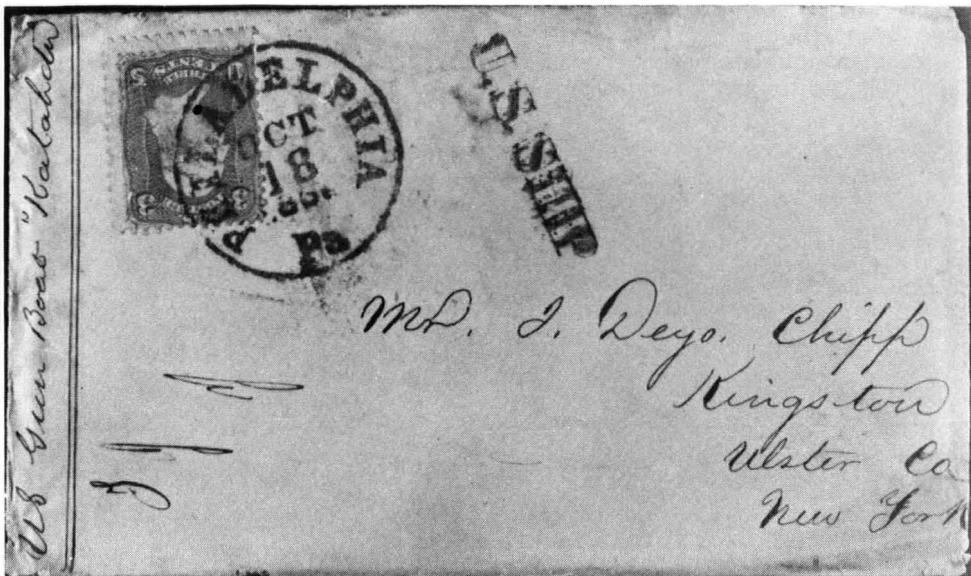 US Gun Boat "Katahdin
PHILADELPHIA
OCT
18
Pa
U.S. SHIP
3
3
Mr. J. Deyo. Chipp
Kingston
Ulster Co
New York